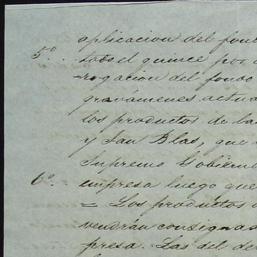 aplicacion del fon
5º. todo el quince por c
rogacion del fondo
gravámenes actua
los productos de la
y San Blas, que
Supremo Gobierno
6º. empresa luego que
= Los productos
vendrán consignas
presa. Las del de